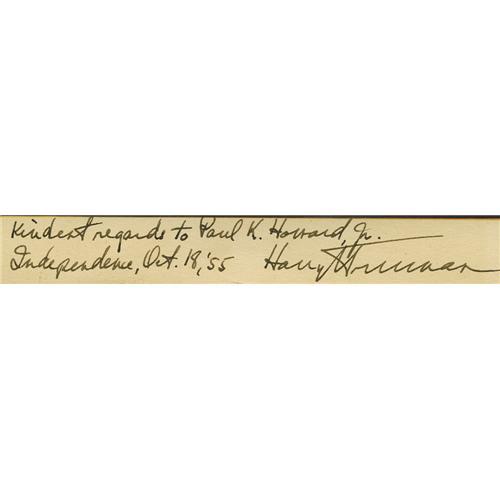 Kindest regards to Paul K. Howard, Jr.
Independence, Oct. 18, '55 Harry S Truman